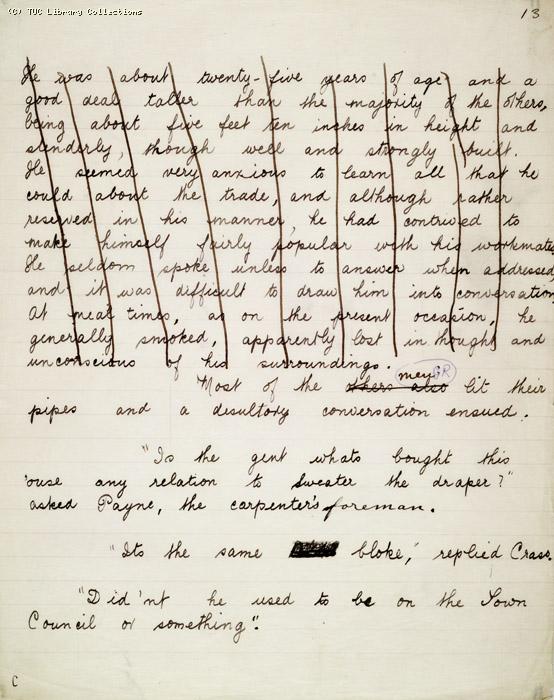 (C) TUC Library Collections
13
He was about twenty-five years of age and a
good deal taller than the majority of the others,
being about five feet ten inches in height and
slenderly, though well and strongly built.
He seemed very anxious to learn all that he
could about the trade, and although rather
reserved in his manner, he had contrived to
make himself fairly popular with his workmates
He seldom spoke unless to answer when addressed,
and it was difficult to draw him into conversation
At meal times, as on the present occasion, he
generally smoked, apparently lost in thought and
unconscious of his surroundings.
men
Most of the others also lit their
pipes and a desultory conversation ensued.
"Is the gent whats bought this
'ouse any relation to Sweater the draper?"
asked Payne, the carpenter's foreman.
"Its the same bloke," replied Crass.
"Did'nt he used to be on the Town
Council or something".
C